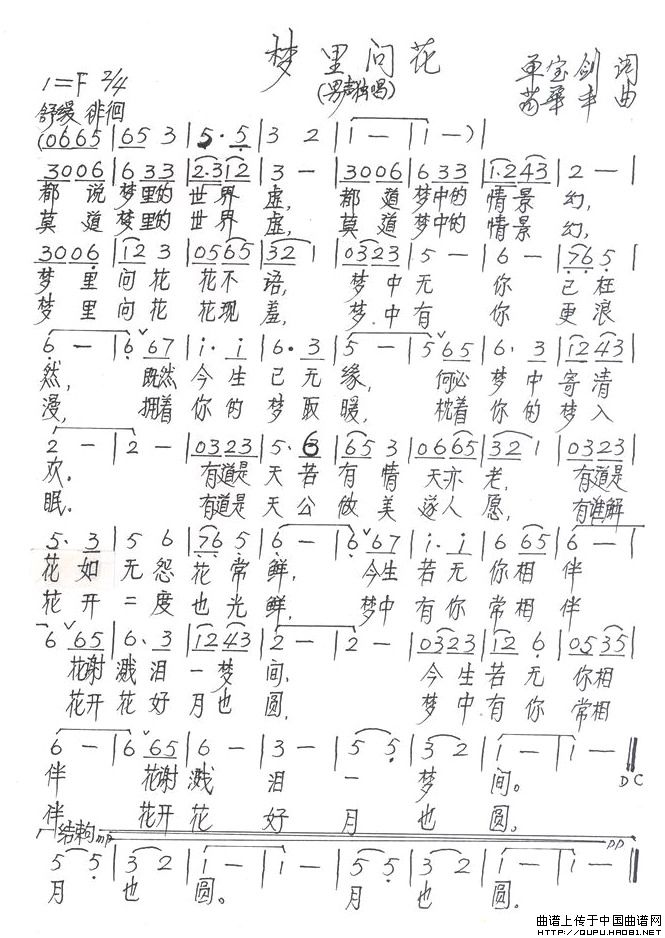 梦里问花
(男声独唱)
单宝剑 词
华丰 曲
1=F 2/4
舒缓 徘徊
(0665|653|5·5|32|1—|1—)|
3006|633|2·312|3—|3006|633|1·243|2—|
都说梦里的世界虚,都道梦中的情景幻,
莫道梦里的世界虚,莫道梦中的情景幻,
3006|123|0565|321|0323|5—|6—|765|
梦里问花花不语,梦中无你已枉
梦里问花花现羞,梦中有你更浪
6—|6ˇ67|i·i|6·3|5—|5ˇ65|6·3|1243|
然,既然今生已无缘,何必梦中寄情
漫,拥着你的梦取暖,枕着你的梦入
2—|2—|0323|5·6|653|0665|321|0323|
欢。有道是天若有情天亦老,有道是
眠。有道是天公做美遂人愿,有谁解
5·3|56|765|6—|6ˇ67|i·i|665|6—|
花如无怨花常鲜,今生若无你相伴
花开二度也光鲜,梦中有你常相伴
6ˇ65|6·3|1243|2—|2—|0323|126|0535|
花谢溅泪一梦间,今生若无你相
花开花好月也圆,梦中有你常相
6—|6ˇ65|6—|3—|55|32|1—|1—‖
伴花谢溅泪一梦间。
DC
伴,花开花好月也圆。
结束句mp
pp
55|32|1—|1—|55|32|1—|1—‖
月也圆。月也圆。
曲谱上传于中国曲谱网
HTTP://QUPU.HAO81.NET